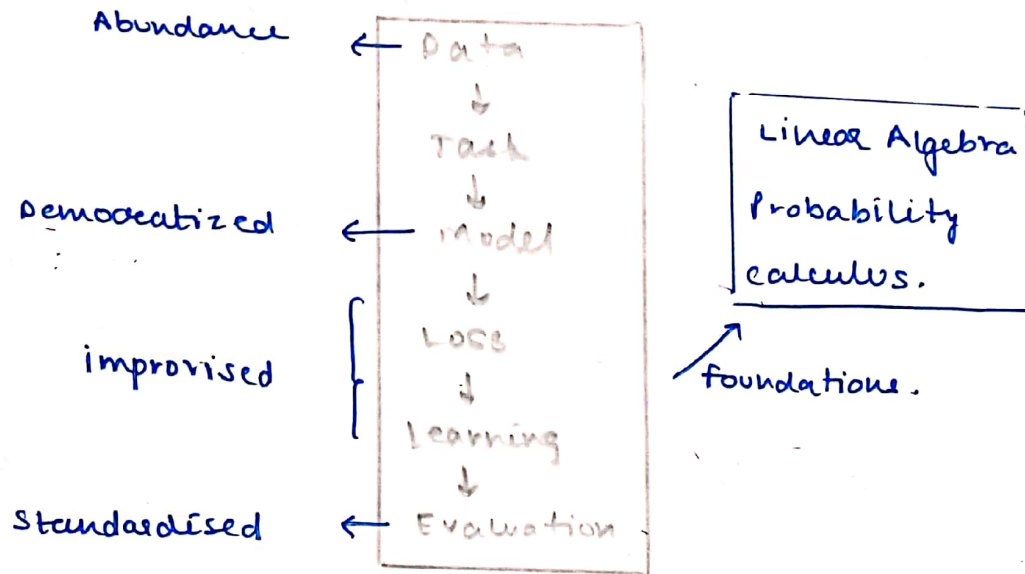 Abundance ← Data
↓
Task
↓
Democratized ← Model
↓
improvised { Loss
↓
Learning
↓
Standardised ← Evaluation
Linear Algebra
Probability
calculus.
foundations.